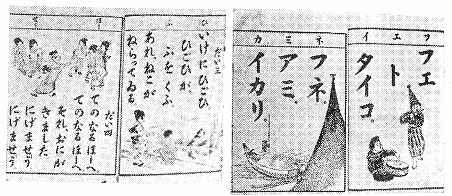 フエ
ト
タイコ。
ネ ミ カ
フネ、
アミ、
イカリ。
だい三
いけにひごひ
ひごひが、
ふをくふ。
あれねこが
ねらってゐる
だい四
てのなるほーへ
てのなるほーへ
それ、おにが
きました
にげませう
にげませう